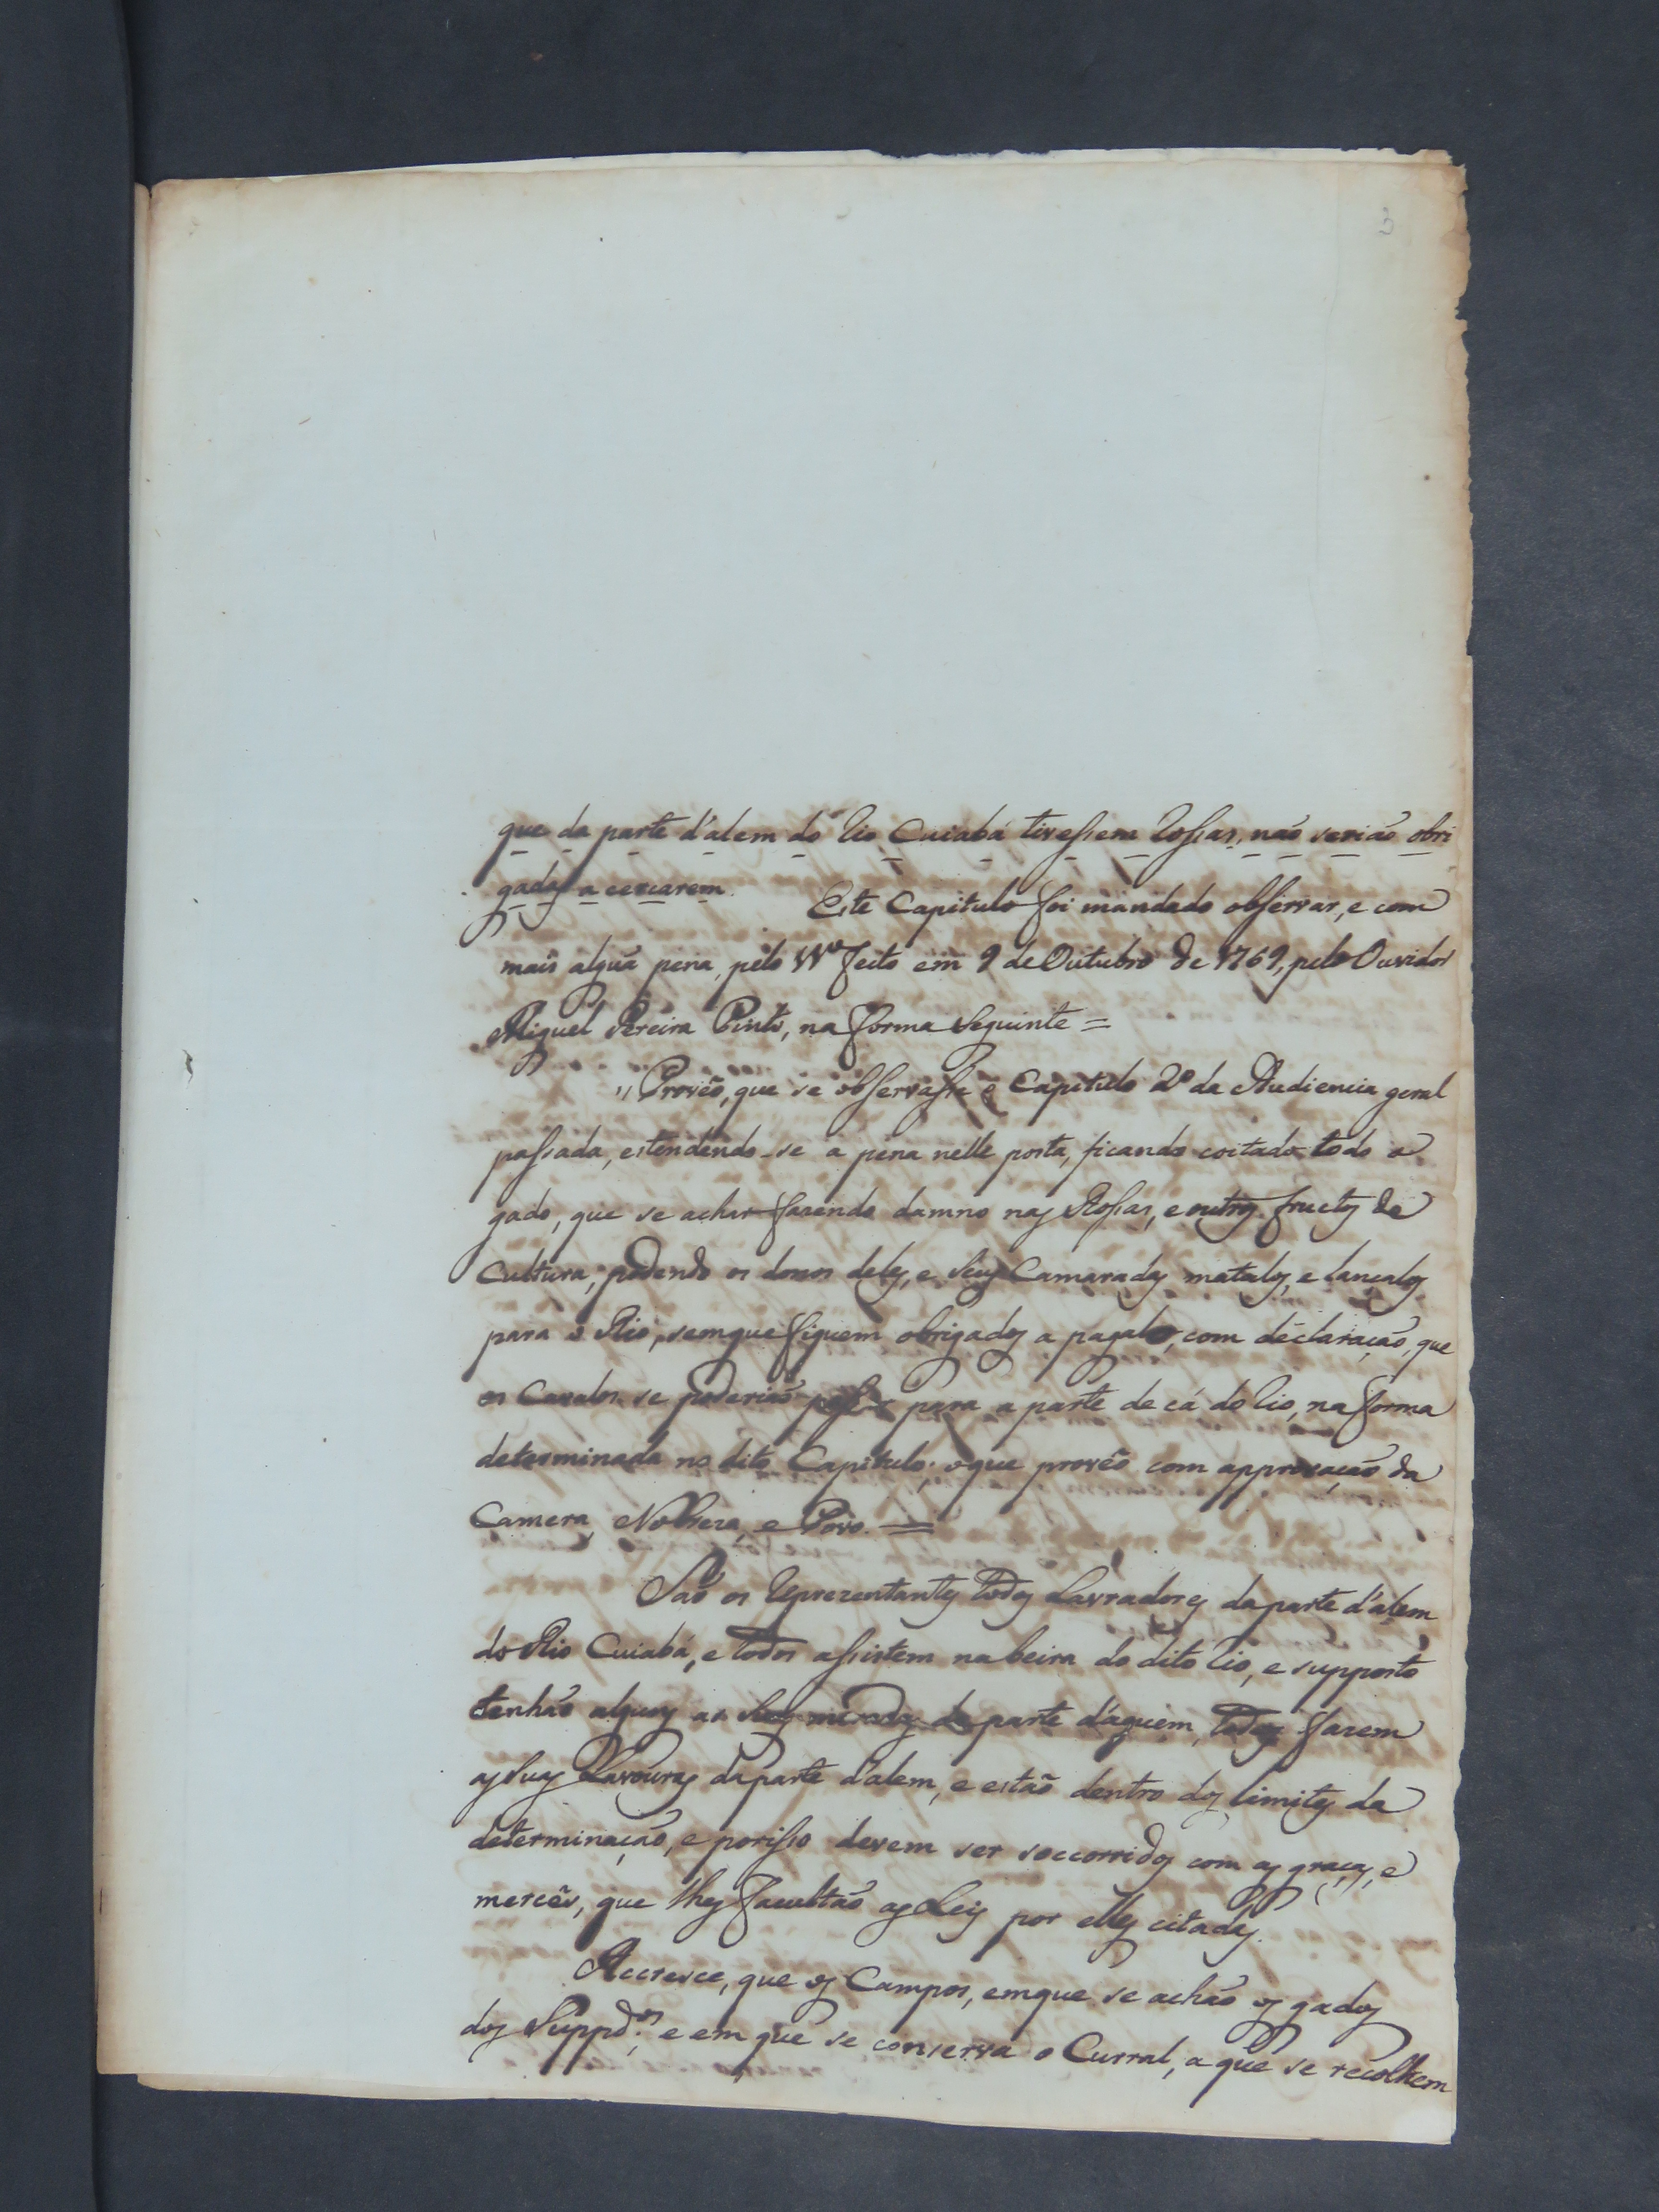 3
que da parte d'alem do rio Cuiabá tivessem rossas, não serião obri
gados a cercarem. Este Capitulo foi mandado observar, e com
mais algũa pena, pelo feito em 9 de Outubro de 1769, pelo Ouvidor
Miguel Pereira Pinto, na forma seguinte =
" Proveo, que se observasse o Capitulo 2º da Audiencia geral
passada, estendendo-se a pena nelle posta, ficando coitado todo o
gado, que se achar fasendo damno nas Rossas, e outros fructos de
Cultura; podendo os donos deles, e seus Camaradas matalos, e lançalos
para o Rio, sem que fiquem obrigados a pagalo, com declaração, que
os Cavalos se poderião passar para a parte de cá do rio, na forma
determinada no dito Capitulo; o que proveo com approvação da
Camera, Nobresa, e Povo. =
São os reprezentantes todos Lavradores da parte d'alem
do Rio Cuiabá, e todos assistem na beira do dito rio, e supposto
tenhão alguns as suas moradas da parte d'aquem, todos fasem
as suas Lavouras da parte d'alem, e estão dentro dos limites da
determinação, e porisso devem ser soccorridos com as graças, e
mercês, que lhes facultão as Leis por elles citadas.
Accresce, que os Campos, em que se achão os gados
dos Suppd.os, e em que se conserva o Curral, a que se recolhem